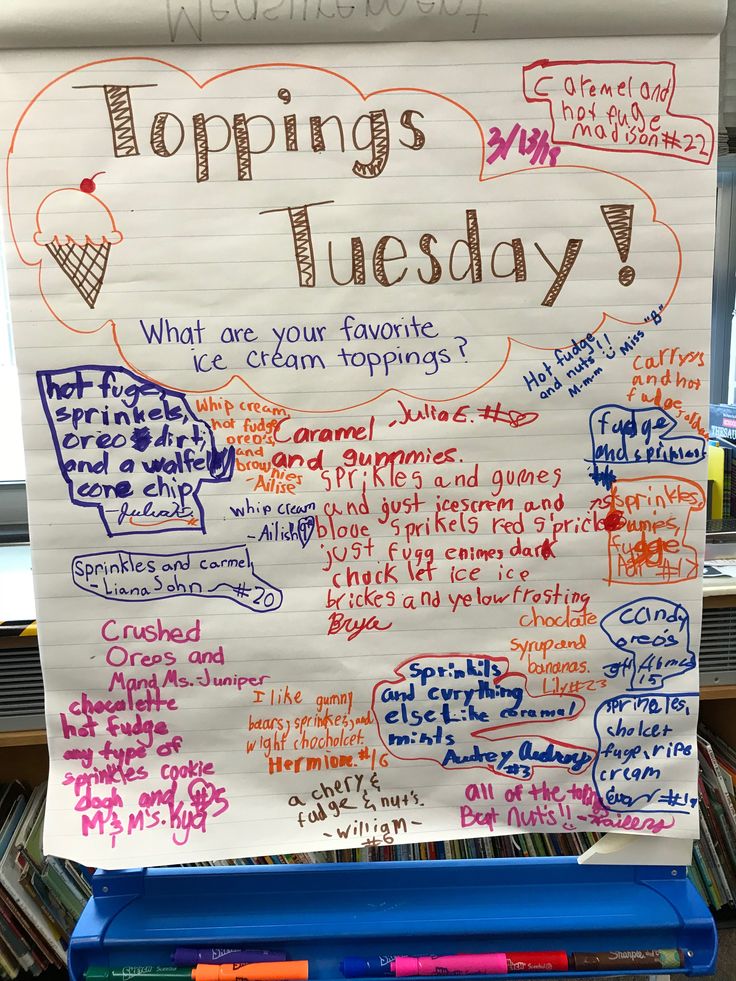 Measurement
Toppings
Tuesday!
Caramel and
hot fuge
madison #22
3/13/19
What are your favorite
ice cream toppings?
Hot fudge
and nuts!!
M-m-m Miss "B"
carrysis
and hot
fudge
hot fuge,
sprinkels,
oreo dirt,
and a walfel
cone chip
-Julia
Whip cream,
hot fudge
oreo's
and
brownies
Ailise
Caramel -Julia E. #8
and gummies.
fudge
and sprinkles
whip cream
-Ailish
sprikles and gumes
and just icescrem and
bloue sprikels red spricle
just fugg enimes dark
chock let ice ice
brickes and yelow frosting
Brya
sprinkles
fugge
Sprinkles and carmel
-Liana Sohn - #20
Crushed
Oreos and
M and Ms.-Juniper
choclate
syrup and
bananas.
Lily #23
candy
oreo's
15
chocalette
hot fudge
any type of
sprinkles cookie
dogh and #5
M & M's. Kya
I like gummy
baars, sprinkes, and
wight chocholet.
Hermione #16
Sprinkils
and evrything
else Like caramal
mints
Audrey Audrey
#3
sprinkles,
cholcet
fuge,
cream
a chery, &
fudge & nut's.
-william-
#6
all of the
But Nut's!!
Sharpie